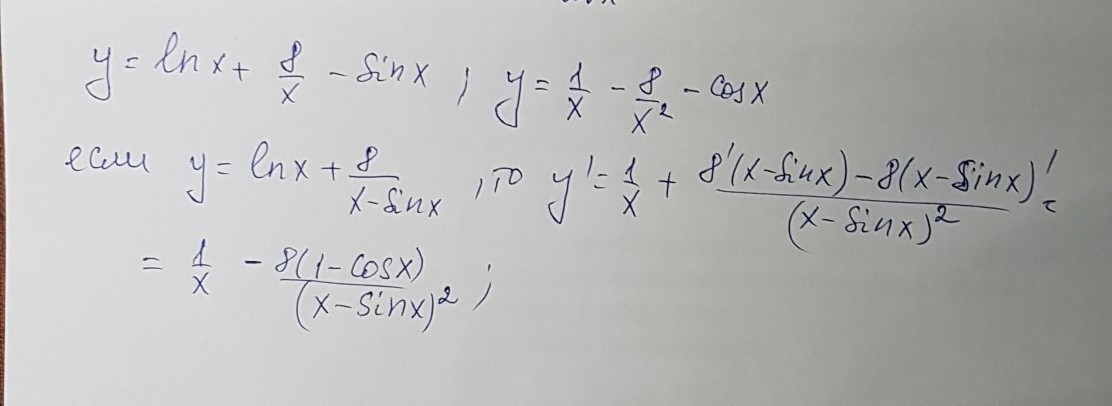 y = ln x + 8/x - sin x ; y = 1/x - 8/x² - cos x
если y = ln x + 8/(x - sin x) , то y' = 1/x + (8'(x - sin x) - 8(x - sin x)')/(x - sin x)² =
= 1/x - 8(1 - cos x)/(x - sin x)² ;